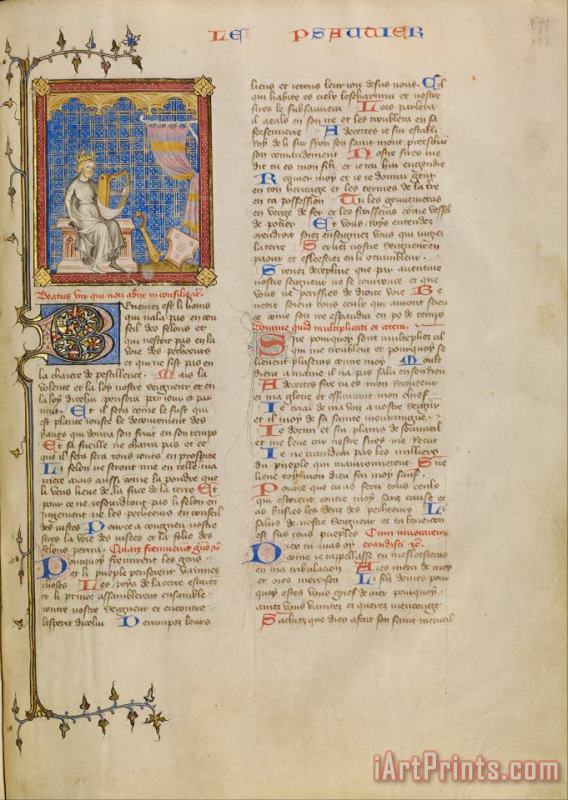 LE PSAUTIER
Beatus vir qui non abijt in consilio
Bieneurez est li homs
qui nala pas en con
seil des felons et
qui nestut pas en la
voie des pecheours
et qui ne sist pas en
la chaiere de pestillence Mais la
volente et la loy nostre seigneur et en
la loy dicelui pensera par iour et par
nuit Et il sera come le fust qui
est plante iouste le decourement des
yaues qui donra son fruit en son temps
Et sa fueille ne charra pas et ce
que il fera sera tous iours en prosperite
Li felon ne seront mie en telle ma
niere mais aussi come la poudre que
le vens lieve de la face de la terre Et
pour ce ne resourdront pas li felon en
iugement ne les pecheours en conseil
des iustes Pour ce a congneu nostre
sires la voie des iustes et la
felons perira Quare fremuerunt gentes
Pourquoy fremirent les gens
et li pueple penserent vaines
choses Les roys de la terre esturent
et li prince assamblerent ensamble
contre nostre seigneur et encontre
lesperit dicelui Derrumpez leurs
liens et ietons leur iou desus nous Cil
qui habite es cielx les escharnira et nostre
sires les Lors parlera
il a eulx en son ire et les troublera en sa
forsennerie A decertes ie sui establi
roy de li sur syon son saint mont preeschant
son comandement Nostre sires me
dit tu es mon filz et ie tai hui engendre
Requier moy et ie te donrai gent
en ton heritage et les termes de la terre
en ta possession Tu les gouverneras
en verge de fer et les froisseras come vessel
de potier Et vous roys entendez
enseigniez vous qui iugiez
la terre Servez nostre seigneur en
paour et esleesciez en li o tramblour
Prenez decepline que par aventure
nostre seigneur ne se courrouce et que
vous ne perissiez de droite voie
seront tuit ceulx qui auront
en come son ire espandra en po de temps
Domine quid multiplicati et cetera
Sire pourquoy sont multipliez cil
qui me troublent et pourquoy se
lievent plusieurs contre moy Moult
dient a mame il na pas salu en son dieu
A decertes sire tu es mon receveur
et ma gloire et essauçant mon chief
Ie criai de ma voiz a nostre seigneur
et il moy de sa sainte montaigne
Ie dormi et fui plains de sommeil
et me levai car nostre sires me recut
Ie ne craindrai pas les milliers
du pueple qui mavironnerent Sire
lieve toy mon dieu fai moy sauf
Pource que tu as feru tous ceulx
qui estoient contre moy sanz cause et
as brisies les dens des pecheours Le
salus de nostre seigneur et ta beneicon
est sus tous pueples Cum invocarem
Dieu tu mas oy exaudivit me
come ie tappellasse tu meslescas
en ma tribulacion Aies merci de moy
et oies moroison Li filz dommes pour
quoy estes vous griefs de cuer pourquoy
amez vous vanitez et querez menconge
Sachiez que dieu a fait son saint merveil
iArtPrints.com